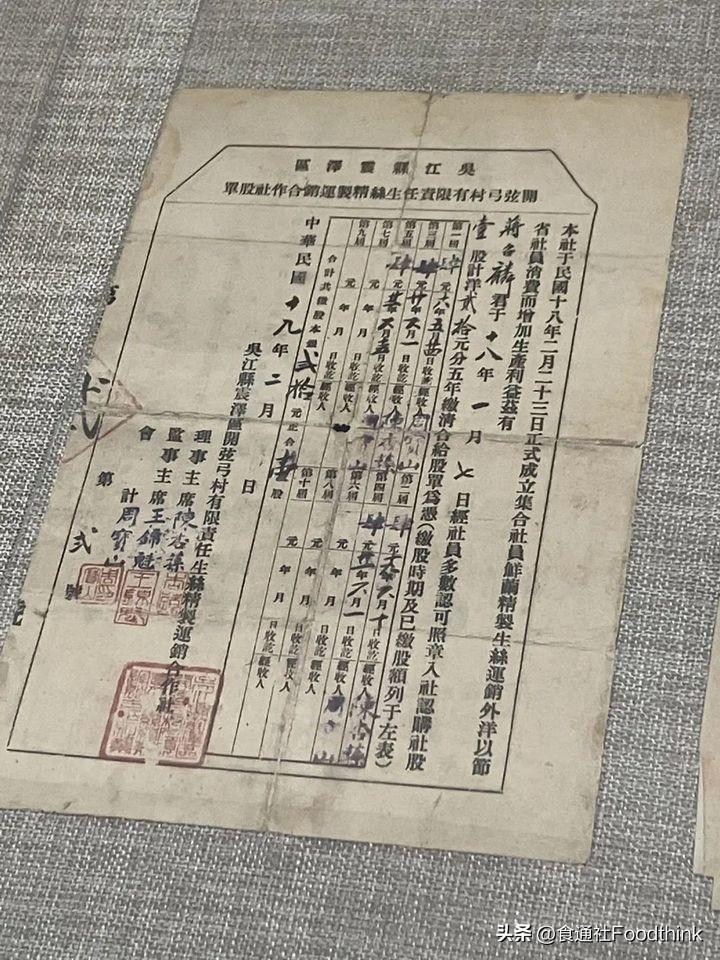 吳江縣震澤區
開弦弓村有限責任生絲精製運銷合作社股單
本社于民國十八年二月二十三日正式成立集合社員鮮繭精製生絲運銷外洋以節
省社員消費而增加生產利益茲有
蔣 麟君于十八年一月七日經社員多數認可照章入社認購社股
壹股計洋貳拾元分五年繳清合給股單為憑(繳股時期及已繳股額列于左表)
第一屆 肆元 年五月 日收訖經收人 第二屆 肆元 年六月十日收訖經收人
第三屆 肆元廿年六月一日收訖經收人 第四屆 肆元 年六月一日收訖經收人
第五屆 肆元 年 月 日收訖經收人 第六屆 元 年 月 日收訖經收人
第七屆 元 年 月 日收訖經收人 第八屆 元 年 月 日收訖經收人
第九屆 元 年 月 日收訖經收人 第十屆 元 年 月 日收訖經收人
合計共繳股本銀弍拾元正合壹股
中華民國十九年二月 日
吳江縣震澤區開弦弓村有限責任生絲精製運銷合作社
理事主席陳杏蓀
監事主席王錦魁
會計周寶山
第弍號
头条 @食通社Foodthink